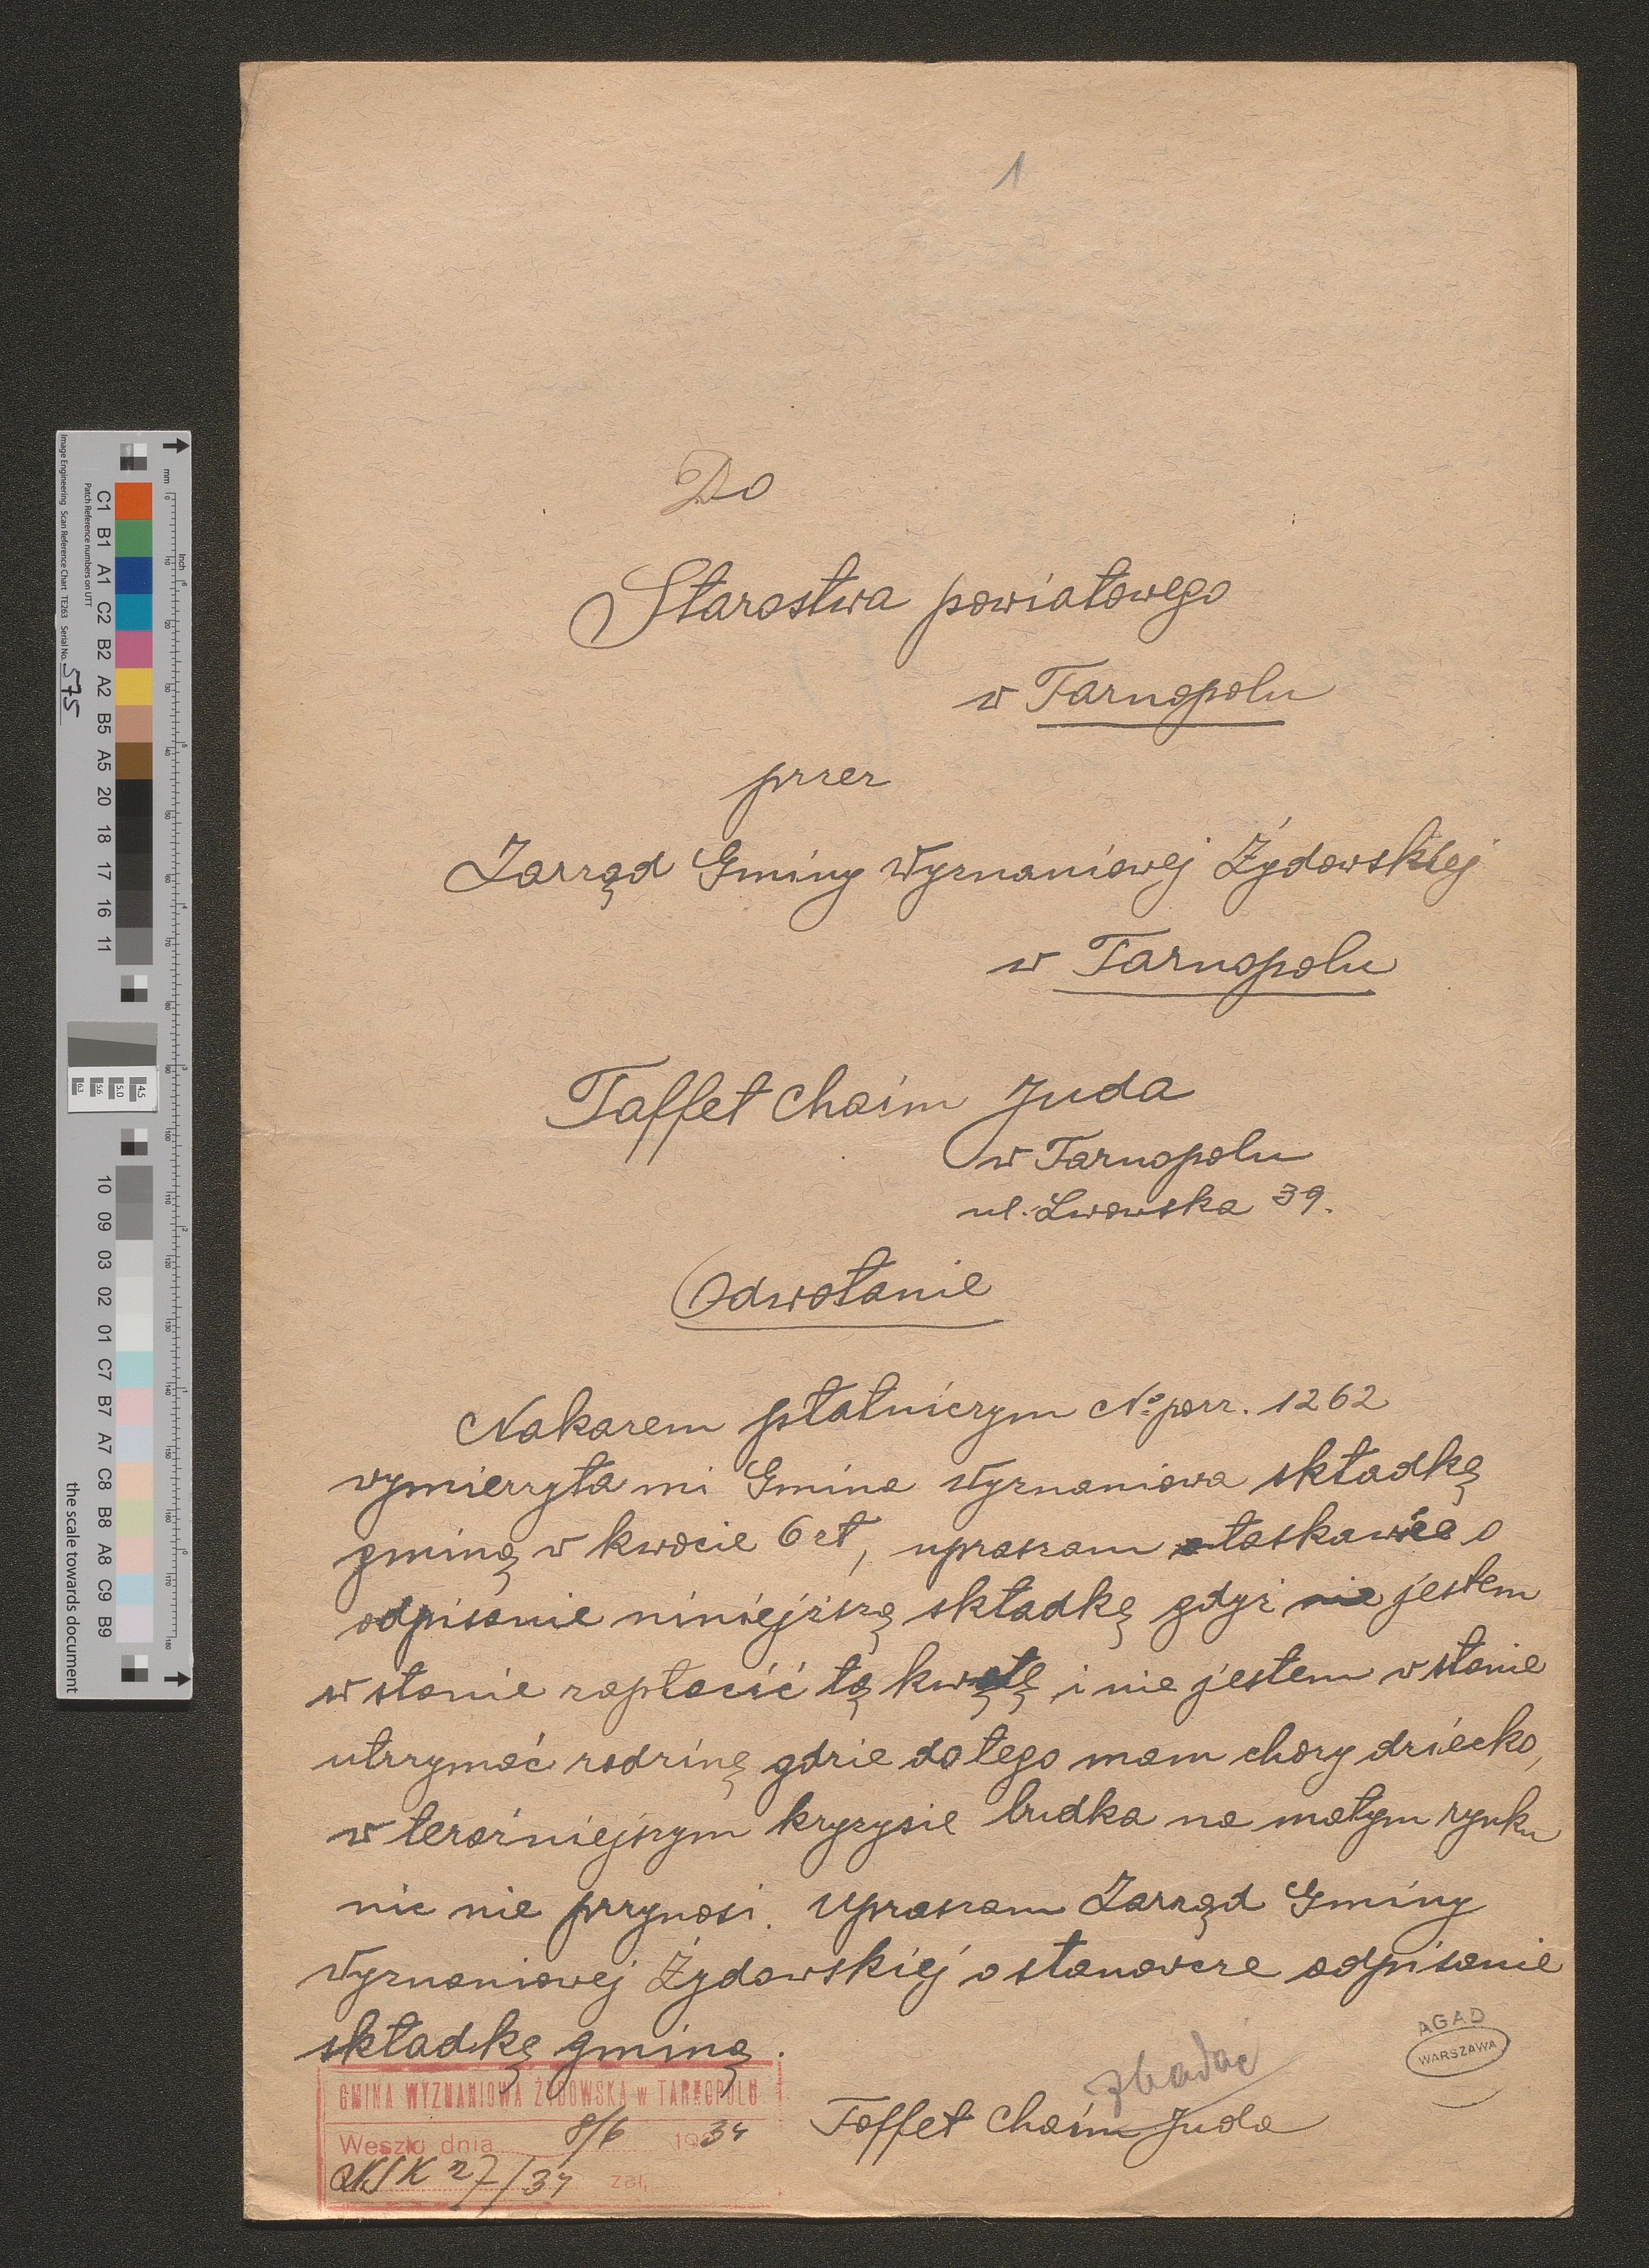 1
Do
Starostwa powiatowego
w Tarnopolu
przez
Zarząd Gminy Wyznaniowej Żydowskiej
w Tarnopolu
Taffet Chaim Juda
w Tarnopolu
ul. Lwowska 39.
Odwołanie
Nakazem płatniczym No. porz. 1262
wymierzyła mi Gmina Wyznaniowa składkę
gminą w kwocie 6 zł, upraszam łaskawie o
odpisanie niniejszą składkę gdyż nie jestem
w stanie zapłacić tą kwotę i nie jestem w stanie
utrzymać rodzinę gdzie dotego mam chory dziecko,
w teraźniejszym kryzysie budka na małym rynku
nic nie przynosi. Upraszam Zarząd Gminy
Wyznaniowej Żydowskiej o stanowcze odpisanie
składkę gminą.
zbadać
Taffet Chaim Juda
AGAD
WARSZAWA
GMINA WYZNANIOWA ŻYDOWSKA w TARNOPOLU
Weszło dnia 8/6 1934
27/34 zał.
Image Engineering Scan Reference Chart TE263 Serial No. 575
Patch Reference numbers on UTT
mm
inch
C1 B1 A1 C2 B2 A2 B5 A5 20 18 17 16 11
10 09 03 02 01 C7 B7 A7 C8 B8 A8 C9 B9
the scale towards document